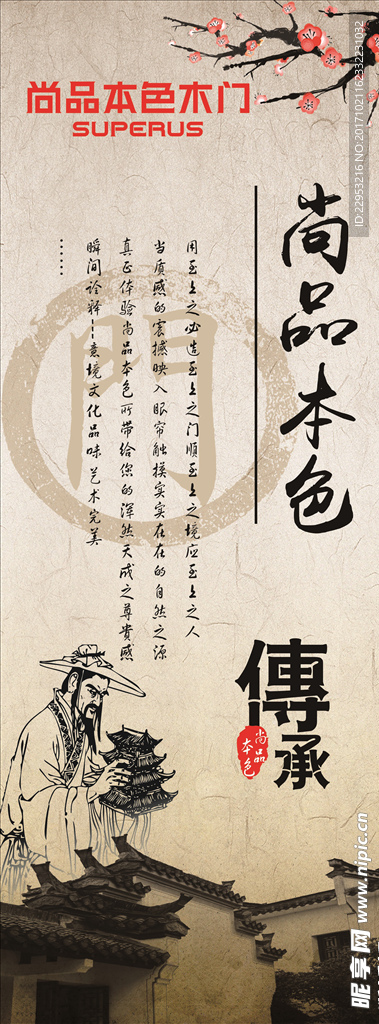 尚品本色木门
SUPERUS
尚品本色
用至上之心造至上之门顺至上之境应至上之人
当质感的震撼映入眼帘触摸实实在在的自然之源
真正体验尚品本色所带给您的浑然天成之尊贵感
瞬间诠释---意境文化品味 艺术完美
......
門
傳承
尚品本色
ID:22953216 NO:20171021162332231032
昵享网 www.nipic.cn